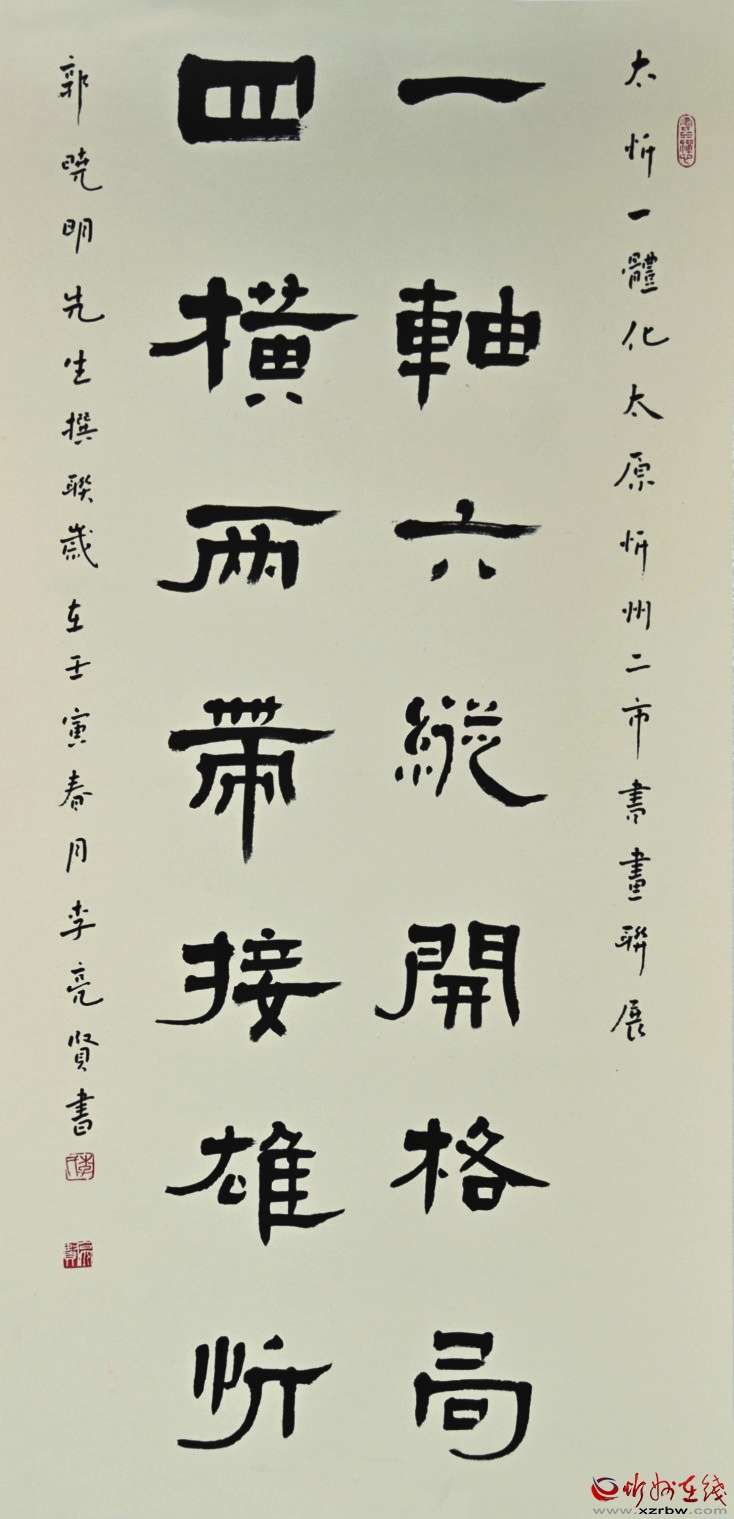 太忻一體化太原忻州二市書畫聯展
一軸六縱開格局
四橫兩帶接雄忻
郭曉明先生撰聯歲在壬寅春月李亮賢書
忻州在线
www.xzrbw.com